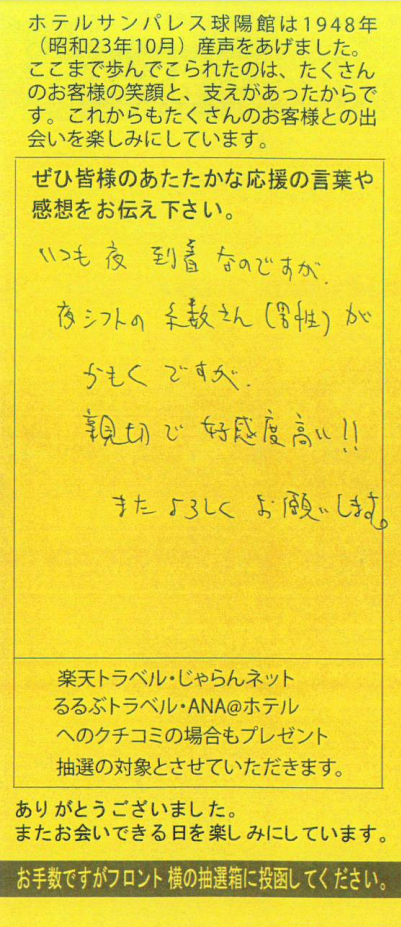 ホテルサンパレス球陽館は1948年
（昭和23年10月）産声をあげました。
ここまで歩んでこられたのは、たくさん
のお客様の笑顔と、支えがあったからで
す。これからもたくさんのお客様との出
会いを楽しみにしています。
ぜひ皆様のあたたかな応援の言葉や
感想をお伝え下さい。
いつも夜 到着なのですが、
夜シフトの 糸数さん(男性)が
かもくですが、
親切で 好感度高い!!
またよろしくお願いします。
楽天トラベル・じゃらんネット
るるぶトラベル・ANA@ホテル
へのクチコミの場合もプレゼント
抽選の対象とさせていただきます。
ありがとうございました。
またお会いできる日を楽しみにしています。
お手数ですがフロント横の抽選箱に投函してください。